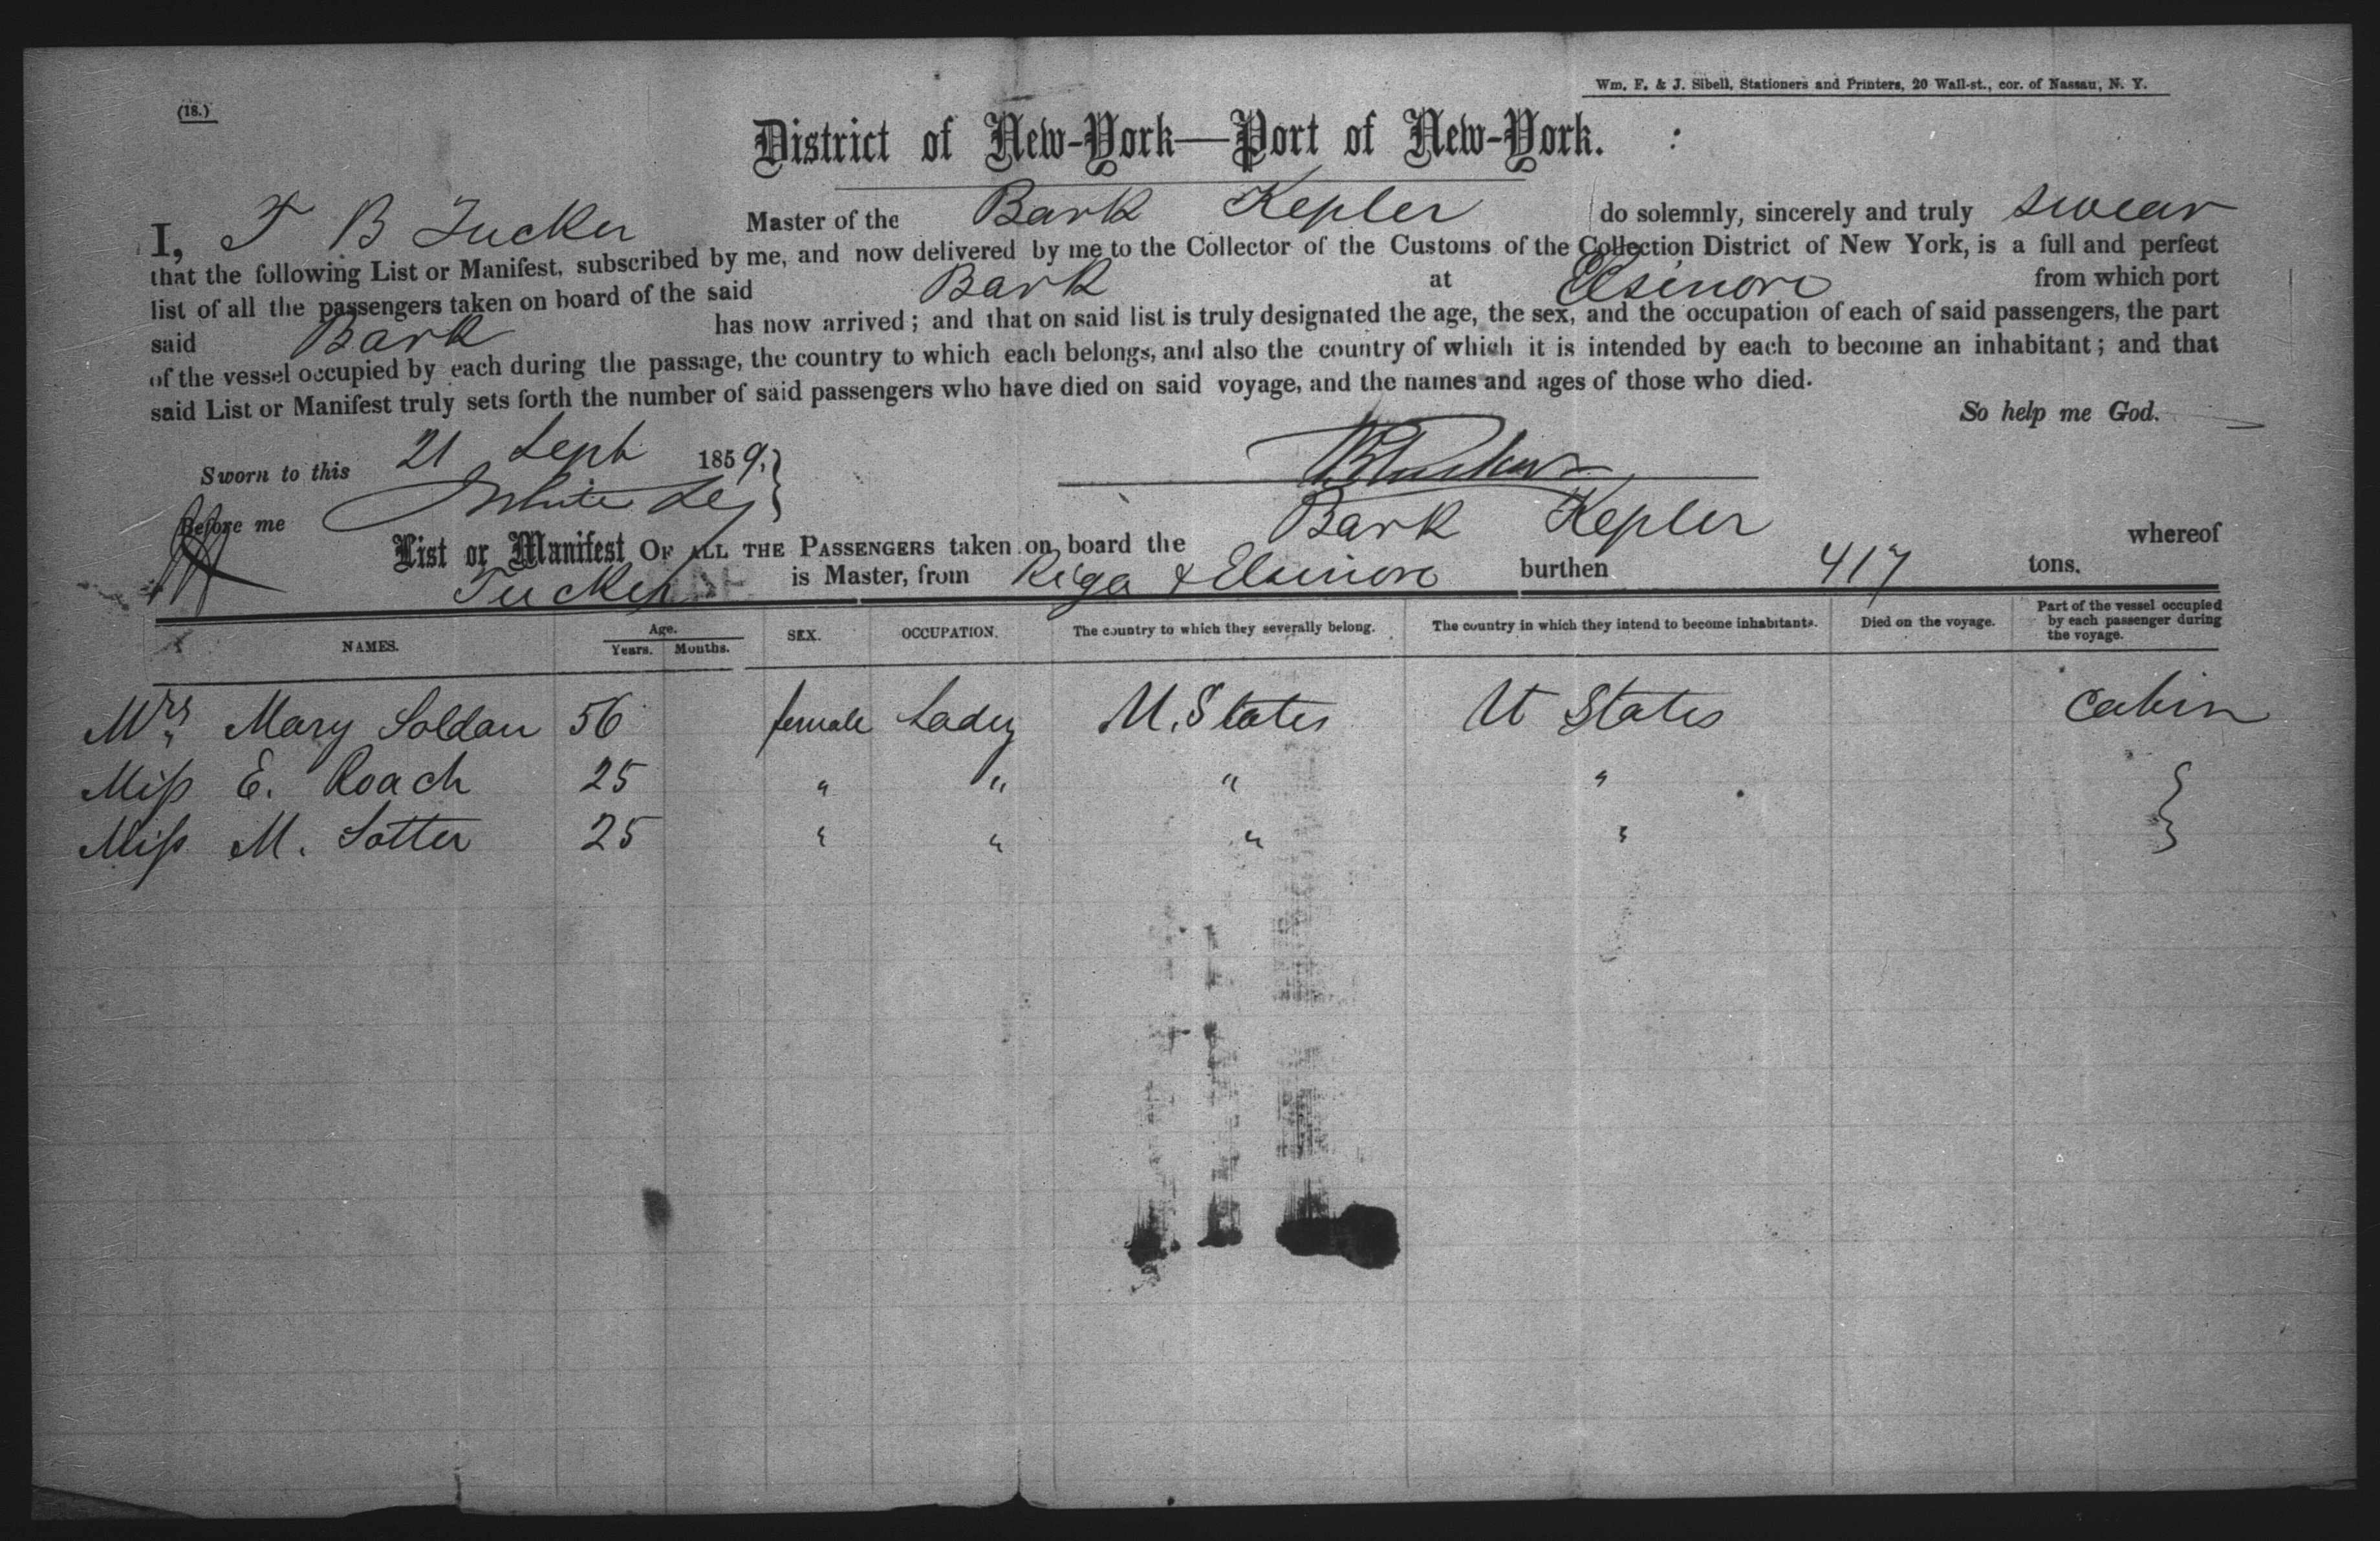 Wm. F. & J. Sibell, Stationers and Printers, 20 Wall-st., cor. of Nassau, N. Y.
(18.)
District of New-York—Port of New-York.
I, T B Tucker Master of the Bark Kepler do solemnly, sincerely and truly swear
that the following List or Manifest, subscribed by me, and now delivered by me to the Collector of the Customs of the Collection District of New York, is a full and perfect
list of all the passengers taken on board of the said Bark at Elsinore from which port
said Bark has now arrived; and that on said list is truly designated the age, the sex, and the occupation of each of said passengers, the part
of the vessel occupied by each during the passage, the country to which each belongs, and also the country of which it is intended by each to become an inhabitant; and that
said List or Manifest truly sets forth the number of said passengers who have died on said voyage, and the names and ages of those who died.
So help me God.
Sworn to this 21 Sept 1859,
Before me White
List or Manifest OF ALL THE PASSENGERS taken on board the Bark Kepler whereof
Tucker is Master, from Riga & Elsinore burthen 417 tons.
NAMES. Age. Years. Months. SEX. OCCUPATION. The country to which they severally belong. The country in which they intend to become inhabitants. Died on the voyage. Part of the vessel occupied by each passenger during the voyage.
Mrs Mary Soldan 56 female Lady U. States U States Cabin
Miss E. Roach 25 " " " "
Miss M. Sotter 25 " " " "